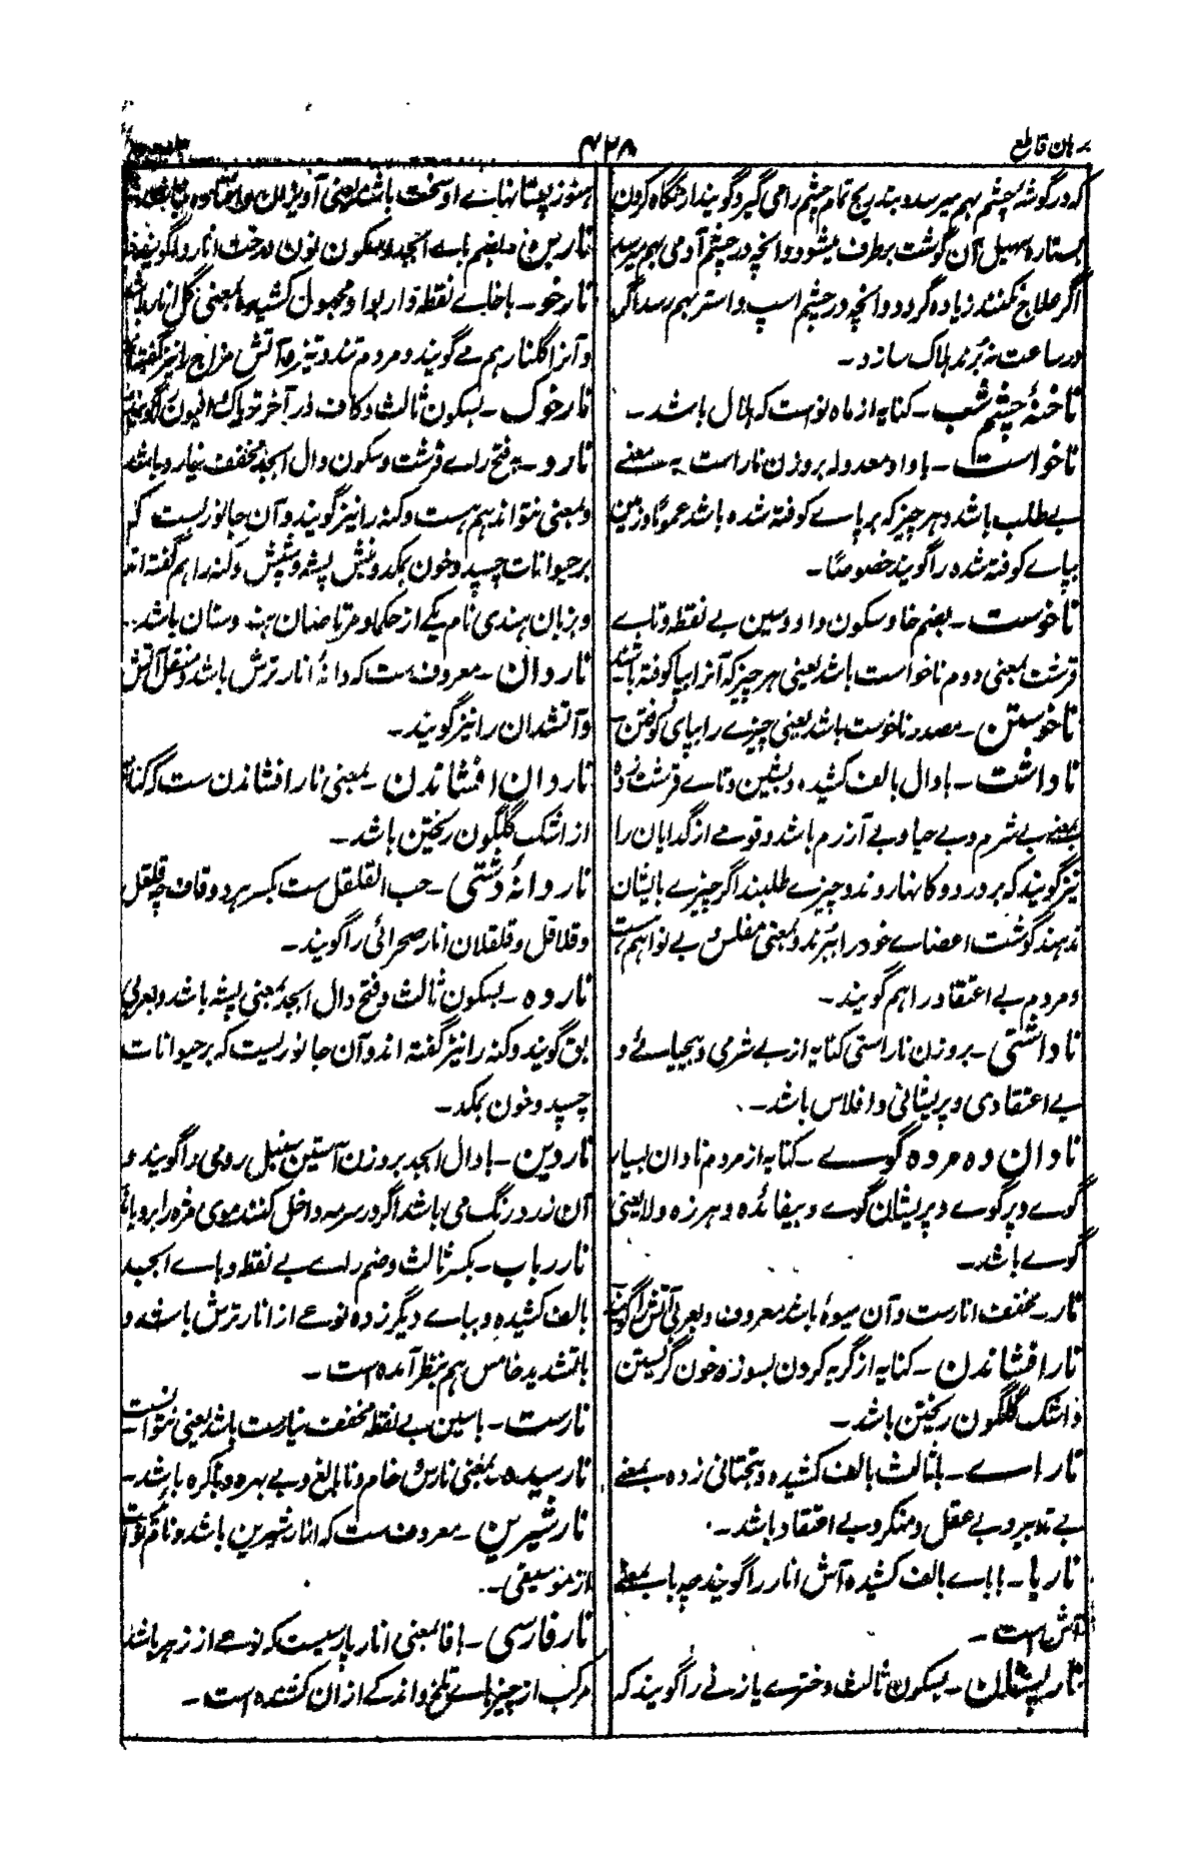 برهان قاطع
۴۲۸
که در گوشهٔ چشم بهم میرسد و بتدریج تمام چشم را می گیرد گویند از نگاه کردن
بستارهٔ سهیل آن گوشت برطرف میشود و آنچه در چشم آدمی بهم رسد
اگر علاج نکنند زیاده گردد و آنچه در چشم اسپ و استر بهم رسد اگر
در ساعت نبرند هلاک سازد ـ
ناخنهٔ چشم شب ـ کنایه از ماه نوست که هلال باشد ـ
ناخواست ـ با واو معدوله بروزن ناراست به معنے
بے طلب باشد و هر چیز که بر پاے کوفته شده باشد عموماً و زمین
بپاے کوفته شده را گویند خصوصاً ـ
ناخوست ـ بضم خا و سکون واو و سین بے نقطه و تاے
قرشت بمعنی دوم ناخواست باشد یعنی هر چیز که آنرا بپا کوفته باشند
ناخوستن ـ مصدر ناخوست باشد یعنی چیزے را بپای کوفتن
ناداشت ـ با دال بالف کشیده و بشین و تاے قرشت زده
بمعنے بے شرم و بے حیا و بے آزرم باشد و قومے از گدایان را
نیز گویند که بر در دوکانها روند و چیزے طلبند اگر چیزے بایشان
ندهند گوشت اعضاے خود را ببرند و بمعنی مفلس و بے نوا هم هست
و مردم بے اعتقاد را هم گویند ـ
ناداشتی ـ بروزن ناراستی کنایه از بے شرمی و بیحیائے و
بے اعتقادی و پریشانی و افلاس باشد ـ
نادان ده مرده گوے ـ کنایه از مردم نادان بسیار
گوے و پرگوے و پریشان گوے و بیفائده و هرزه و لایعنی
گوے باشد ـ
نار ـ مخفف انارست و آن میوهٔ باشد معروف و بعربی آتش را گویند
نار افشاندن ـ کنایه از گریه کردن بسوز و خون گریستن
و اشک گلگون ریختن باشد ـ
ناراے ـ بثالث بالف کشیده و بتحتانی زده بمعنے
بے تدبیر و بے عقل و منکر و بے اعتقاد باشد ـ
ناربا ـ با باے بالف کشیده آش انار را گویند چه با بمعنے
آش است ـ
نارپستان ـ بسکون ثالث دخترے یا زنے را گویند که
هنوز پستانهاے او سخت باشد یعنی آویزان و افتاده نباشد
ناربن ـ بضم باے ابجد و سکون نون درخت انار را گویند
نارخو ـ با خاے نقطه دار بواو مجهول کشیده بمعنی گل انار باشد
و آنرا گلنار هم مے گویند و مردم تند و تیز و آتش مزاج را نیز گفته اند
نارخوک ـ بسکون ثالث و کاف در آخر تریاک افیون را گویند
نارد ـ بفتح راے قرشت و سکون دال ابجد مخفف نیارد باشد
و بمعنی نتواند هم هست و کنه را نیز گویند و آن جانوریست که
بر حیوانات چسپد و خون بمکد و نیش پشه و شپش و کنه را هم گفته اند
و بزبان هندی نام یکے از حکما و مرتاضان هندوستان باشد ـ
ناردان ـ معروف ست که دانهٔ انار ترش باشد و منقل آتش
و آتشدان را نیز گویند ـ
ناردان افشاندن ـ بمعنی نار افشاندن ست که کنایه
از اشک گلگون ریختن باشد ـ
ناردانهٔ دشتی ـ حب القلقل ست بکسر هر دو قاف چه قلقل
و قلاقل و قلقلان انار صحرائی را گویند ـ
نارده ـ بسکون ثالث و فتح دال ابجد بمعنی پشه باشد و بعربی
بق گویند و کنه را نیز گفته اند و آن جانوریست که بر حیوانات
چسپد و خون بمکد ـ
ناردین ـ با دال ابجد بروزن آستین سنبل رومی را گویند و
آن زرد رنگ می باشد اگر در سرمه داخل کنند موی مژه را برویاند
نارباب ـ بکسر ثالث و ضم راے بے نقطه و باے ابجد
بالف کشیده و بباے دیگر زده نوعے از انار ترش باشد و
با تشدید خامس هم بنظر آمده است ـ
نارست ـ با سین بے نقطه مخفف نیارست باشد یعنی نتوانست
نارسیده ـ بمعنی نارس و خام و نابالغ و بے بهره و باکره باشد ـ
نارشیرین ـ معروف ست که انار شیرین باشد و نام نوائیست
از موسیقی ـ
نارفارسی ـ با فا بمعنی انار پارسیست که نوعے از زهر باشد
مرکب از چیزهاے تلخ و اندکے از ان کشنده است ـ